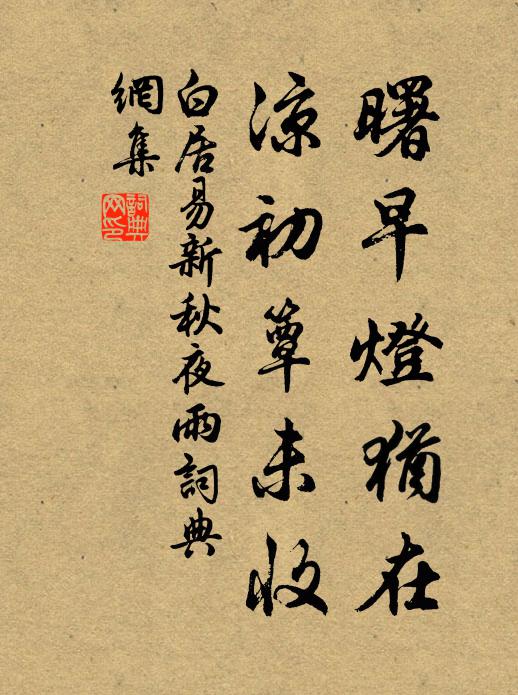 曙早燈猶在
涼初簟未收
白居易新秋夜雨詞典
網集
詞典網印